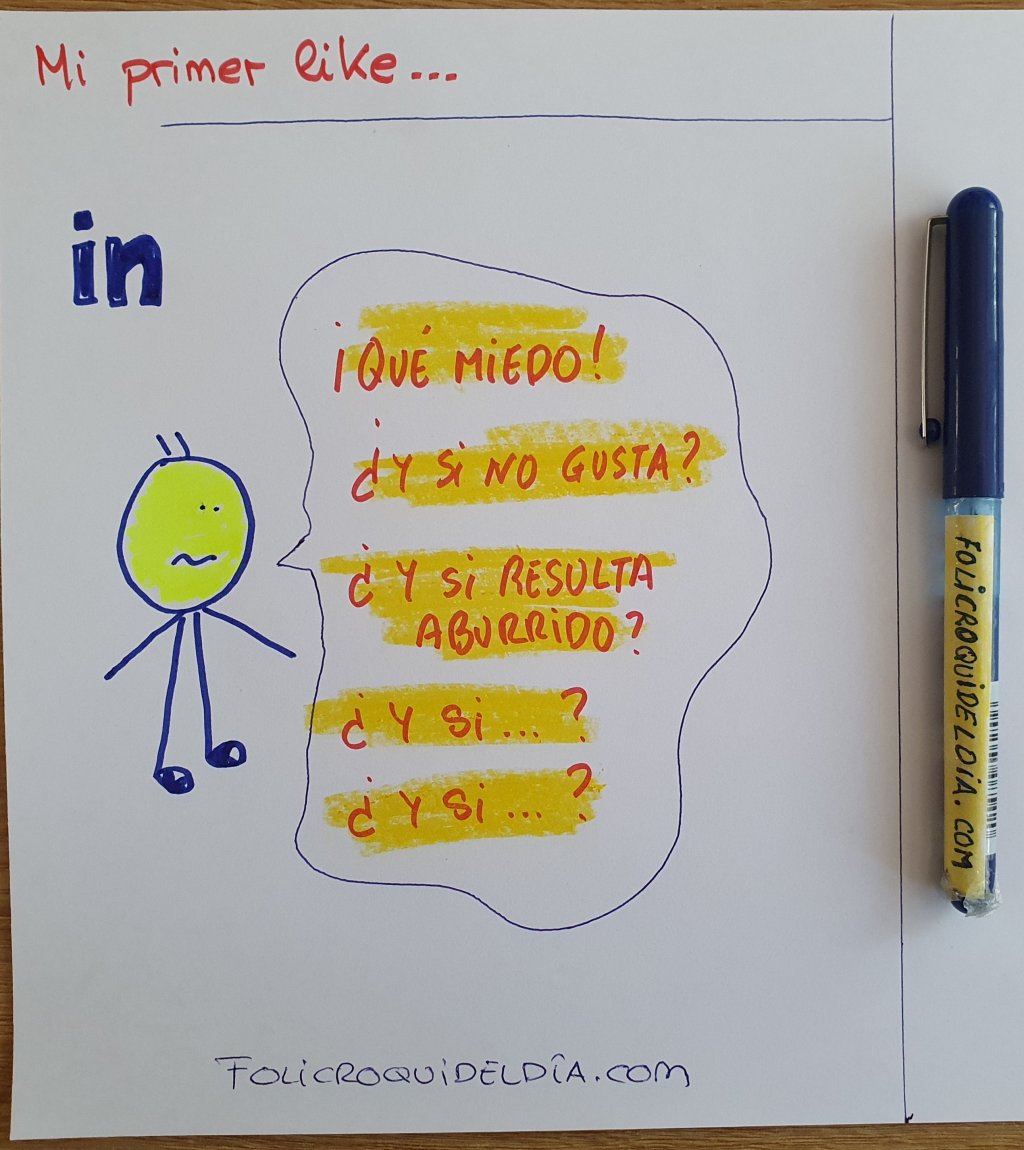 Mi primer like...
in
¡QUÉ MIEDO!
¿Y Si NO GUSTA?
¿Y Si RESULTA
ABURRIDO?
¿Y Si ... ?
¿Y Si ... ?
FOLiCROQUiDELDÍA.COM
FOLiCROQUiDELDÎA.COM